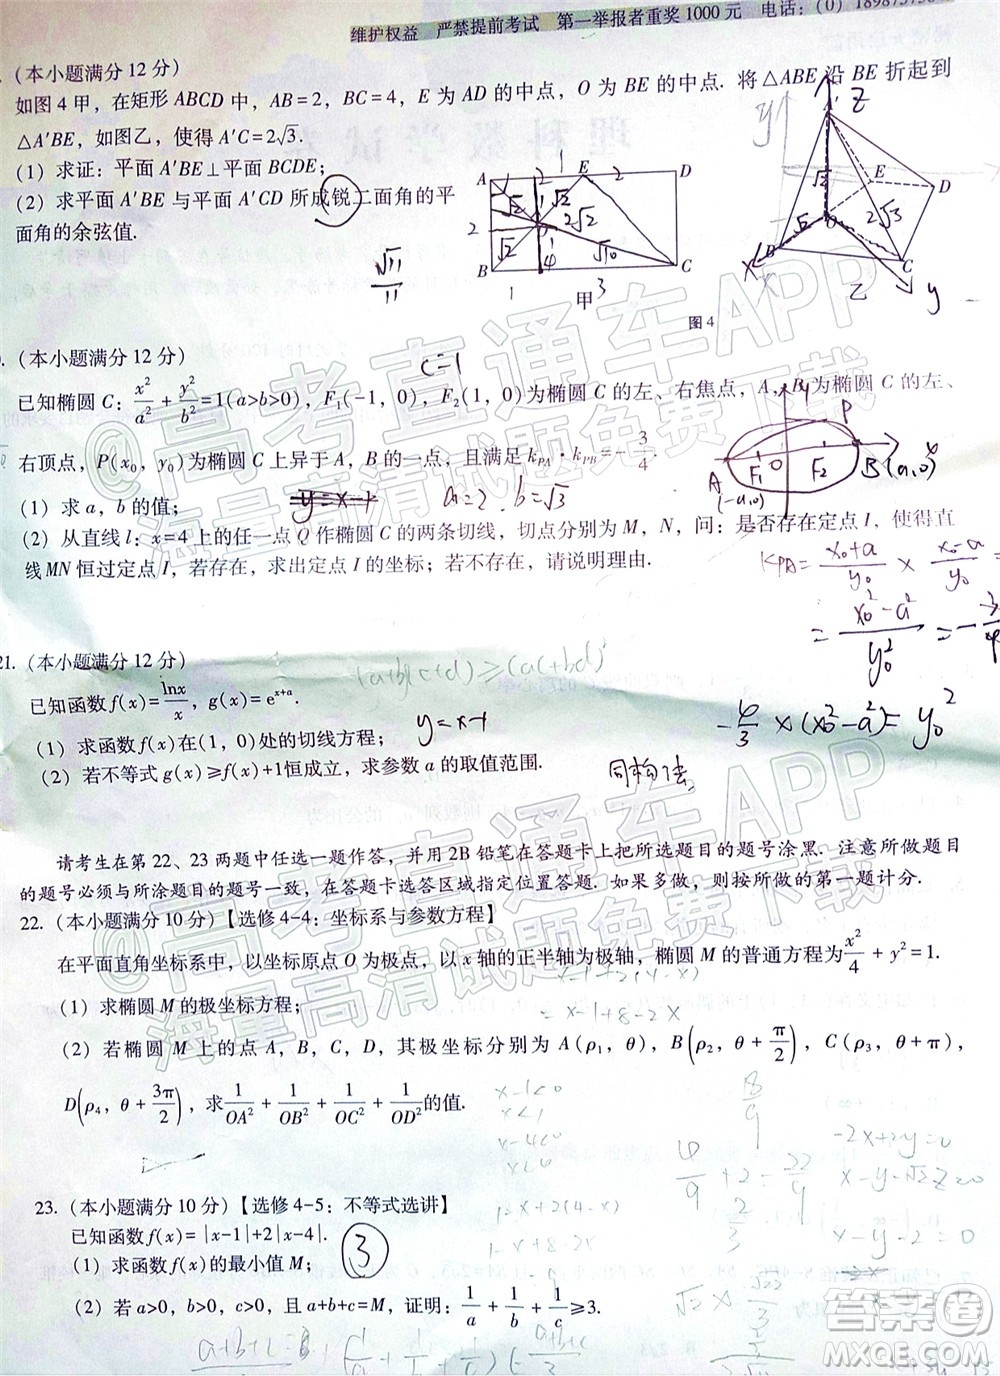 维护权益 严禁提前考试 第一举报者重奖1000元 电话:(0)
(本小题满分12分)
如图4甲，在矩形ABCD中，AB=2，BC=4，E为AD的中点，O为BE的中点. 将△ABE沿BE折起到
△A′BE，如图乙，使得A′C=2√3.
(1) 求证：平面A′BE⊥平面BCDE；
(2) 求平面A′BE与平面A′CD所成锐二面角的平
面角的余弦值.
√11/11
A 2 E 2 D
B 1 甲 3 C
√2 2√2 √10
Z
E D
√2 √2 2√3
X C y
乙
图4
(本小题满分12分)
c=1
已知椭圆C：x²/a²+y²/b²=1(a>b>0)，F₁(-1，0)，F₂(1，0)为椭圆C的左、右焦点，A，B为椭圆C的左、
右顶点，P(x₀，y₀)为椭圆C上异于A，B的一点，且满足k_PA·k_PB=-3/4.
A F₁ O F₂ B(a,0) P
(-a,0)
(1) 求a，b的值；
y=x-1 a=2 b=√3
(2) 从直线l：x=4上的任一点Q作椭圆C的两条切线，切点分别为M，N，问：是否存在定点I，使得直
线MN恒过定点I，若存在，求出定点I的坐标；若不存在，请说明理由.
KPA=(x₀+a)/y₀ × (x₀-a)/y₀
=(x₀²-a²)/y₀² =-3/4
-4/3 ×(x₀²-a²)=y₀²
21.(本小题满分12分)
已知函数f(x)=lnx/x，g(x)=eˣ⁺ᵃ.
(1) 求函数f(x)在(1，0)处的切线方程；
y=x-1
(2) 若不等式g(x)≥f(x)+1恒成立，求参数a的取值范围.
同构法
请考生在第22、23两题中任选一题作答，并用2B铅笔在答题卡上把所选题目的题号涂黑. 注意所做题目
的题号必须与所涂题目的题号一致，在答题卡选答区域指定位置答题. 如果多做，则按所做的第一题计分.
22.(本小题满分10分)【选修4-4：坐标系与参数方程】
在平面直角坐标系中，以坐标原点O为极点，以x轴的正半轴为极轴，椭圆M的普通方程为x²/4+y²=1.
(1) 求椭圆M的极坐标方程；
x-1+2(4-x)
=x-1+8-2x
(2) 若椭圆M上的点A，B，C，D，其极坐标分别为A(ρ₁，θ)，B(ρ₂，θ+π/2)，C(ρ₃，θ+π)，
D(ρ₄，θ+3π/2)，求1/OA²+1/OB²+1/OC²+1/OD²的值.
x-1<0
x<1
x-4<0
x<4
8/9
4/9+2=22/9
-2x+2y=0
x-y-2=0
23.(本小题满分10分)【选修4-5：不等式选讲】
已知函数f(x)=|x-1|+2|x-4|.
(1) 求函数f(x)的最小值M；
3
1-x+2(4-x)
1-x+8-2x
(2) 若a>0，b>0，c>0，且a+b+c=M，证明：1/a+1/b+1/c≥3.
@高考直通车APP
海量高清试题免费下载
@高考直通车APP
海量高清试题免费下载
答案圈
MXQE.COM